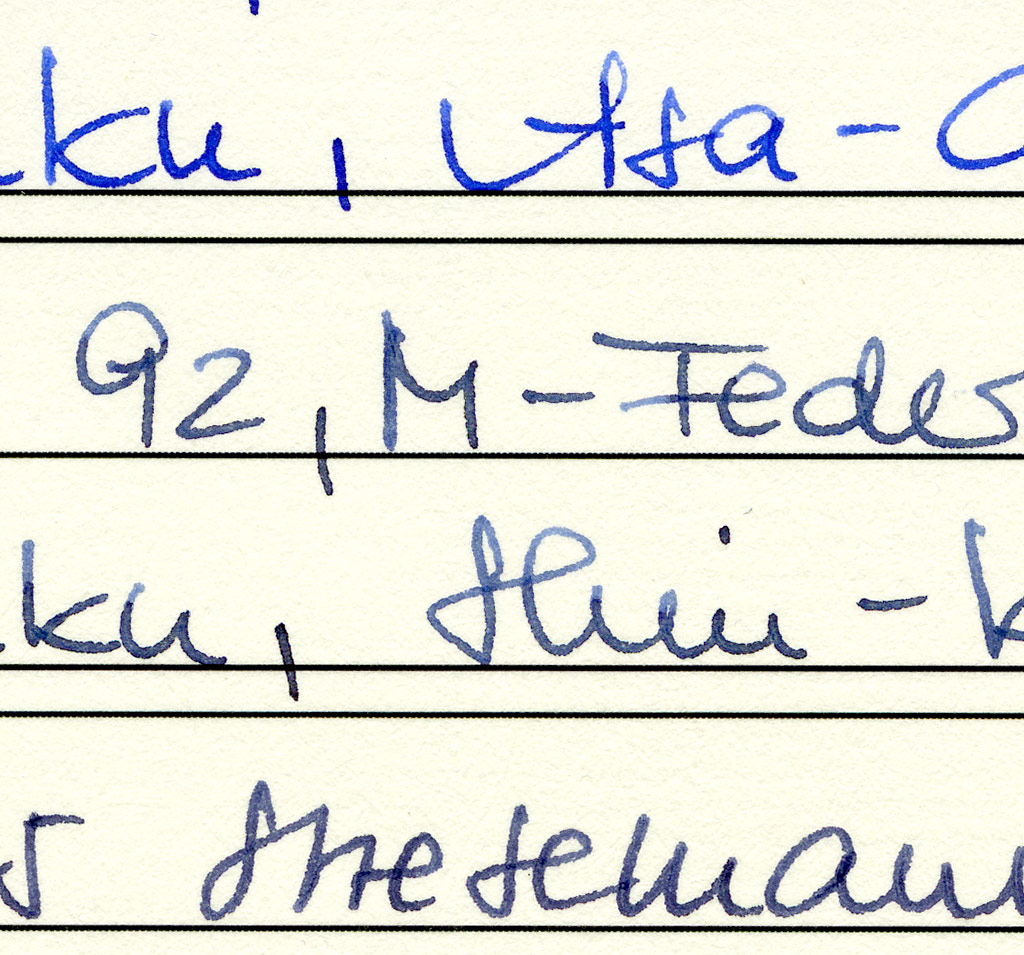 ku, Asa-G
92, M-Feder
ku, Shin-k
5 Stresemann